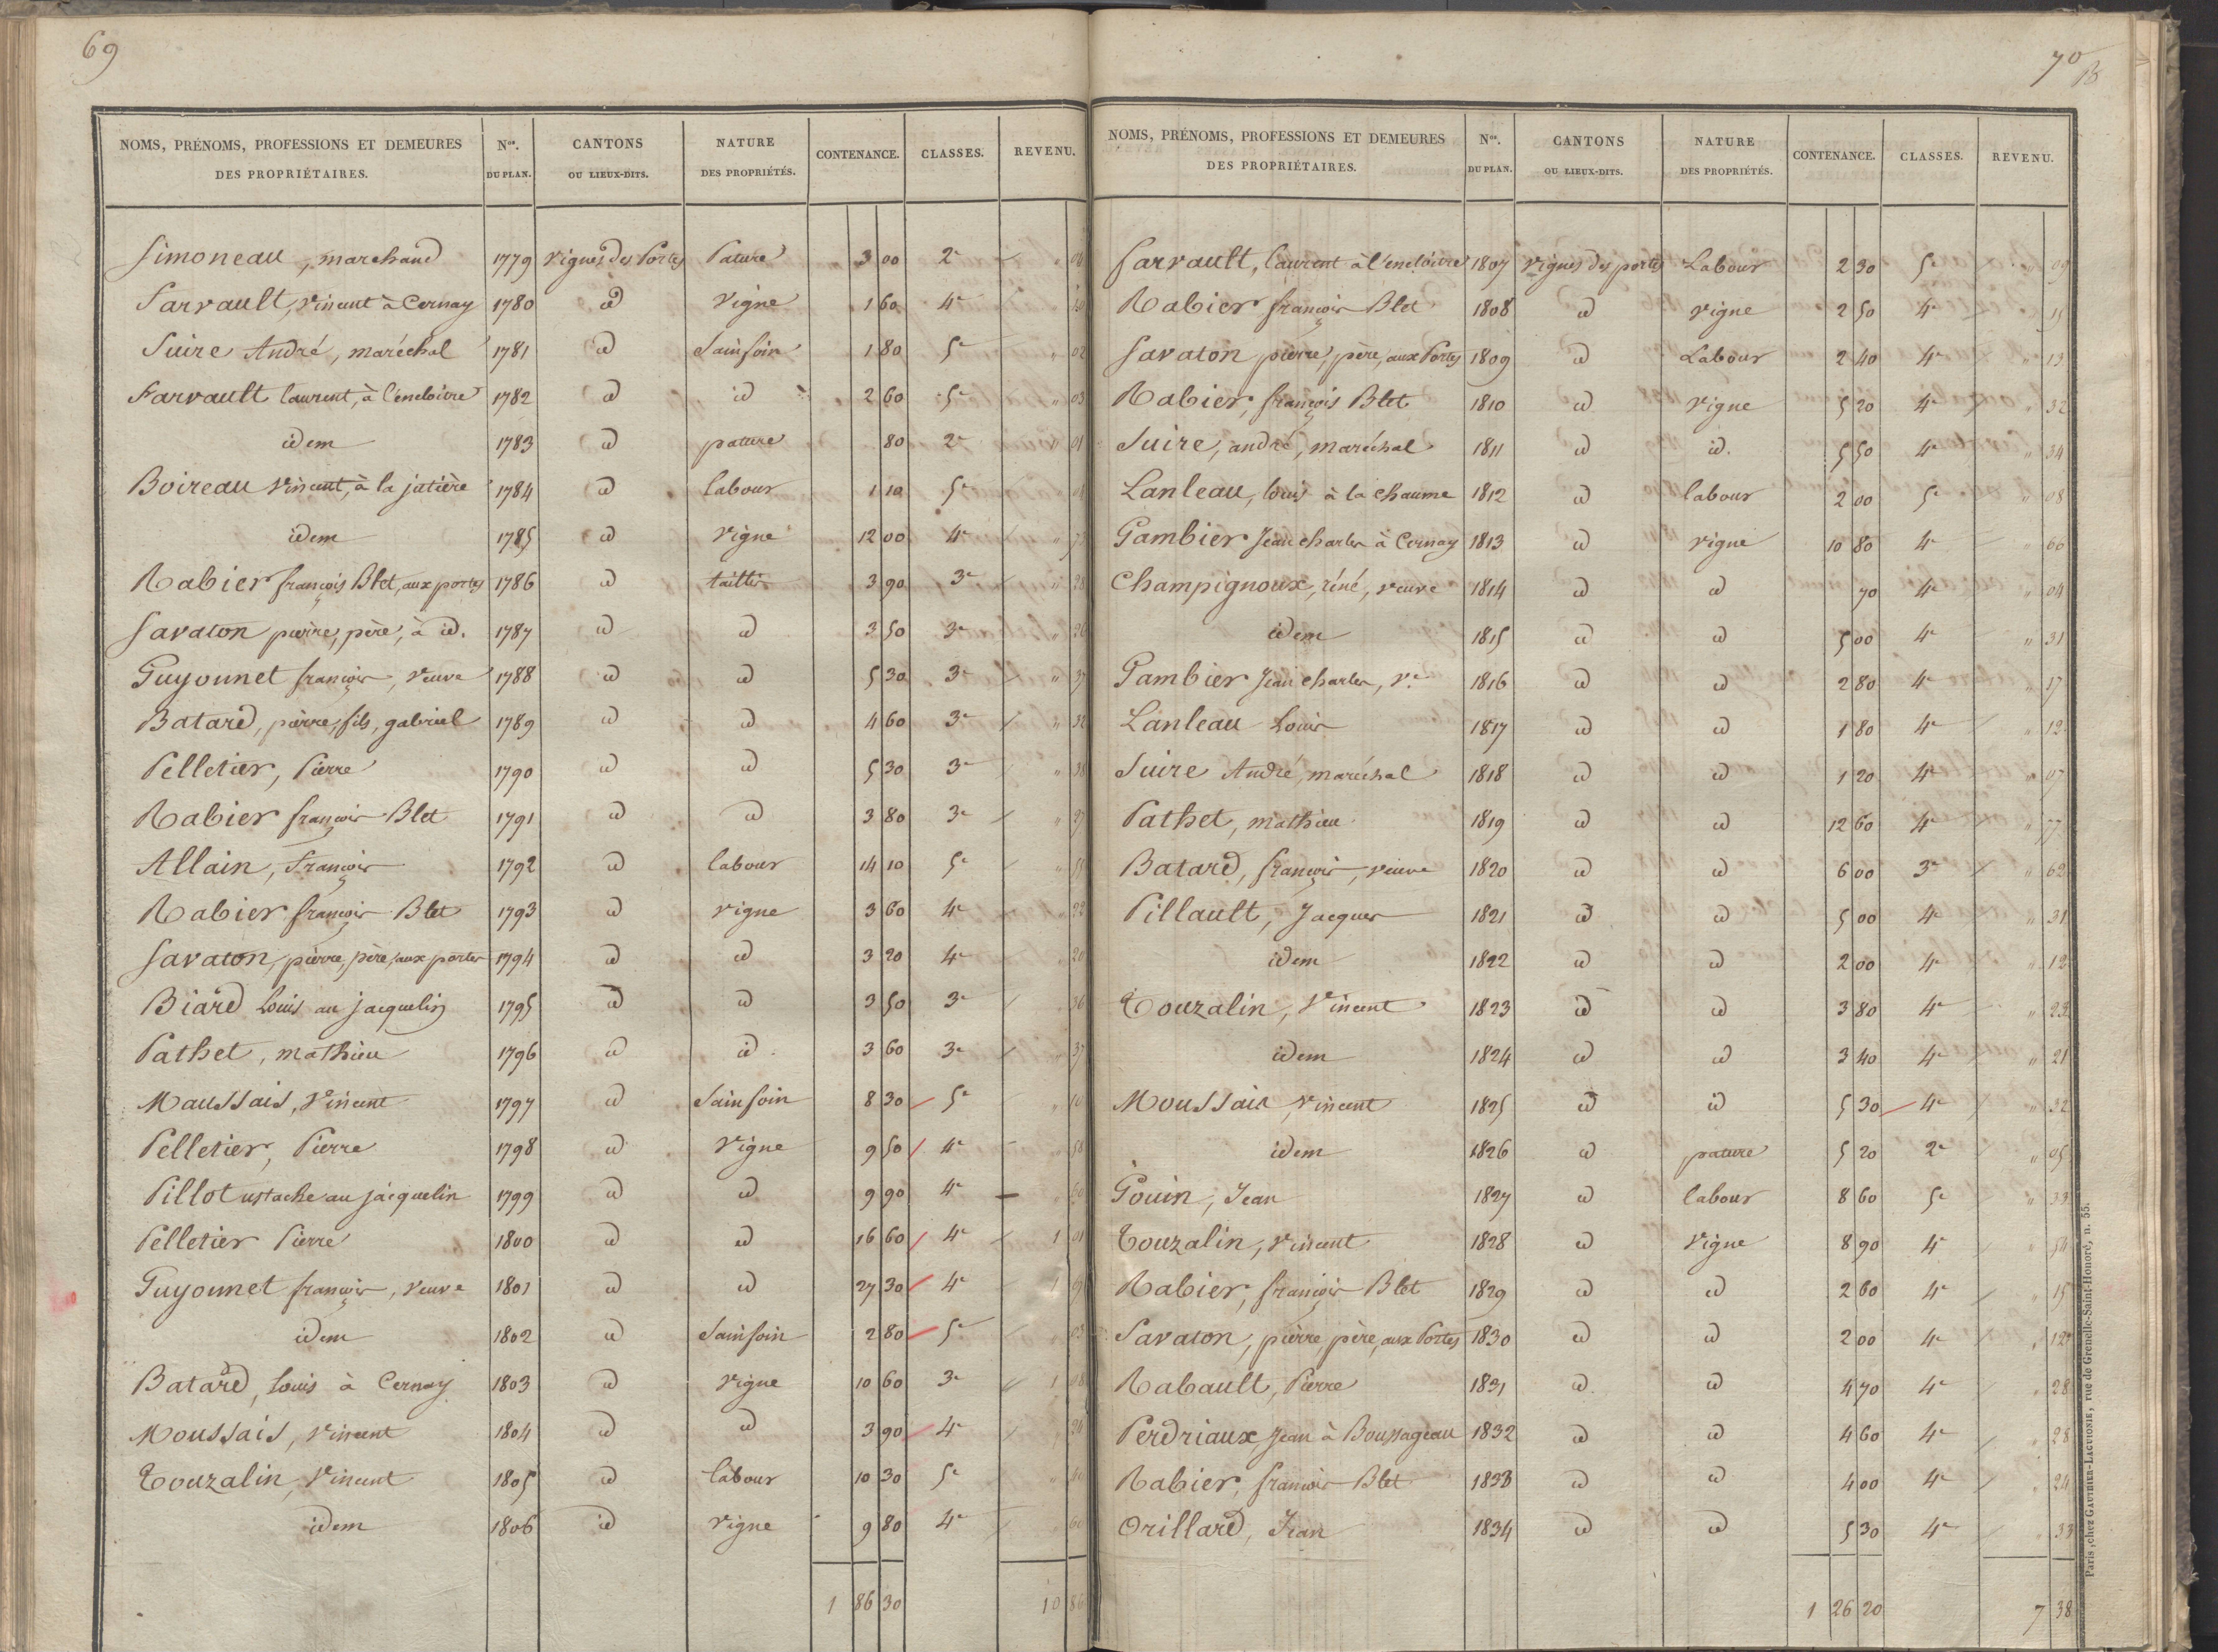 69
NOMS, PRÉNOMS, PROFESSIONS ET DEMEURES DES PROPRIÉTAIRES. Nos. DU PLAN. CANTONS OU LIEUX-DITS. NATURE DES PROPRIÉTÉS. CONTENANCE. CLASSES. REVENU.
Simoneau, marchand 1779 vignes des Portes Pature 3 00 2e
Sarrault, Vincent à Cernay 1780 id Vigne 1 60 4e
Suire André, maréchal 1781 id Sainfoin 1 80 5e " 02
Sarrault laurent, à l'encloitre 1782 id id 2 60 5e " 03
idem 1783 id pature 80 2e " 01
Boireau Vincent, à la jatière 1784 id labour 1 10 5e "
idem 1785 id Vigne 12 00 4e "
Rabier françois Blet, aux portes 1786 id taillis 3 90 3e " 28
Savaton pierre, père, à id. 1787 id id 3 50 3e " 26
Guyonnet françois, veuve 1788 id id 5 30 3e " 37
Batard, pierre, fils, gabriel 1789 id id 4 60 3e " 32
Pelletier, Pierre 1790 id id 5 30 3e " 38
Rabier françois Blet 1791 id id 3 80 3e " 27
Allain, françois 1792 id labour 14 10 5e " 55
Rabier françois Blet 1793 id vigne 3 60 4e 22
Savaton, pierre, père, aux portes 1794 id id 3 20 4e 20
Biard Louis au jacquelin 1795 id id 3 50 3e 36
Pathet, mathieu 1796 id id. 3 60 3e 37
Maussais, Vincent 1797 id Sainfoin 8 30 5e " 10
Pelletier, Pierre 1798 id Vigne 9 50 4e 58
Pillot ustache au jacquelin 1799 id id 9 90 4e 60
Pelletier Pierre 1800 id id 16 60 4e 1 01
Guyonnet françois, veuve 1801 id id 27 30 4e 1
idem 1802 id Sainfoin 2 80 5e 03
Batard, Louis à Cernay 1803 id Vigne 10 60 3e 1 08
Moussais, Vincent 1804 id id 3 90 4e 24
Touzalin, Vincent 1805 id labour 10 30 5e " 40
idem 1806 id Vigne 9 80 4e 60
1 86 30 10 86
70
NOMS, PRÉNOMS, PROFESSIONS ET DEMEURES DES PROPRIÉTAIRES. Nos. DU PLAN. CANTONS OU LIEUX-DITS. NATURE DES PROPRIÉTÉS. CONTENANCE. CLASSES. REVENU.
Sarrault, laurent à l'encloitre 1807 vignes des portes Labour 2 30 5e " 09
Rabier françois Blet 1808 id vigne 2 50 4e 15
Savaton pierre, père, aux Portes 1809 id Labour 2 40 4e " 13
Rabier, françois Blet 1810 id vigne 5 20 4e " 32
Suire, andré, maréchal 1811 id id. 5 50 4e " 34
Lanleau, louis à la chaume 1812 id labour 2 00 5e " 08
Gambier Jean charles à Cernay 1813 id vigne 10 80 4e " 66
Champignoux, réné, veuve 1814 id id 70 4e " 04
idem 1815 id id 5 00 4e " 31
Gambier Jean charles, Ve 1816 id id 2 80 4e " 17
Lanleau Louis 1817 id id 1 80 4e " 12
Suire André, maréchal 1818 id id 1 20 4e " 07
Pathet, mathieu 1819 id id 12 60 4e " 77
Batard, françois, veuve 1820 id id 6 00 3e " 62
Pillault, Jacques 1821 id id 5 00 4e " 31
idem 1822 id id 2 00 4e " 12
Touzalin, Vincent 1823 id id 3 80 4e " 23
idem 1824 id id 3 40 4e " 21
Moussais, Vincent 1825 id id 5 30 4e " 32
idem 1826 id pature 5 20 2e " 05
Gouin, Jean 1827 id labour 8 60 5e " 33
Touzalin, Vincent 1828 id Vigne 8 90 4e " 54
Rabier, françois Blet 1829 id id 2 60 4e " 15
Savaton, pierre, père, aux Portes 1830 id id 2 00 4e " 12
Rabault, Pierre 1831 id id 4 70 4e " 28
Perdriaux, Jean à Boussageau 1832 id id 4 60 4e " 28
Rabier, françois Blet 1833 id id 4 00 4e " 24
Orillard, Jean 1834 id id 5 30 4e " 33
1 26 20 7 38
Paris, chez GAUTHIER-LAGUIONIE, rue de Grenelle-Saint-Honoré, n. 55.